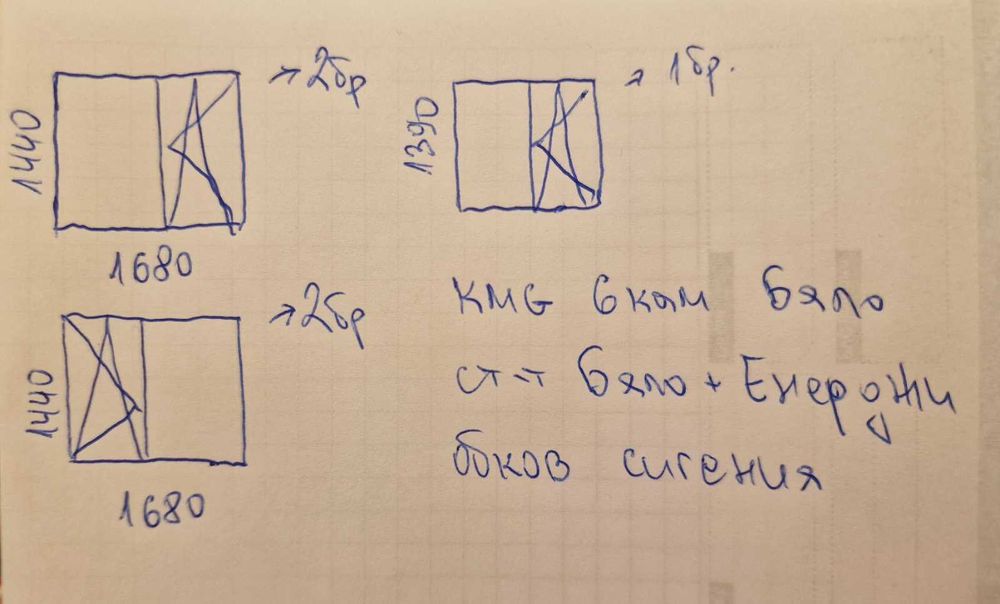 → 2бр
1440
1680
→ 1бр.
1390
→ 2бр
1440
1680
KMG 6 кам бяло
ст-т бяло + Енерджи
боков сигения